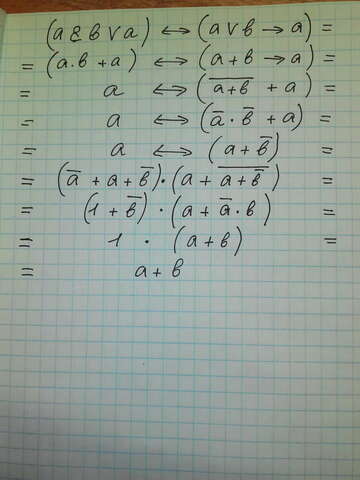 (a & b ∨ a) ↔ (a ∨ b → a) =
= (a·b + a) ⟺ (a + b → a) =
= a ⟺ (\overline{a+b} + a) =
= a ⟺ (ā·b̄ + a) =
= a ⟺ (a + b̄) =
= (ā + a + b̄)·(a + \overline{a+b̄}) =
= (1 + b̄)·(a + ā·b) =
= 1 · (a + b) =
= a + b